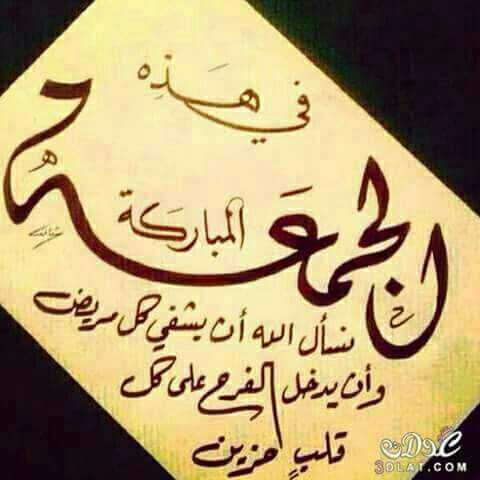 في هَذِه
الجمعة
المباركة
نسأل الله أن يشفي كل مريض
وأن يدخل الفرح على كل
قلبٍ حزين
عدلات
3OLAT.COM